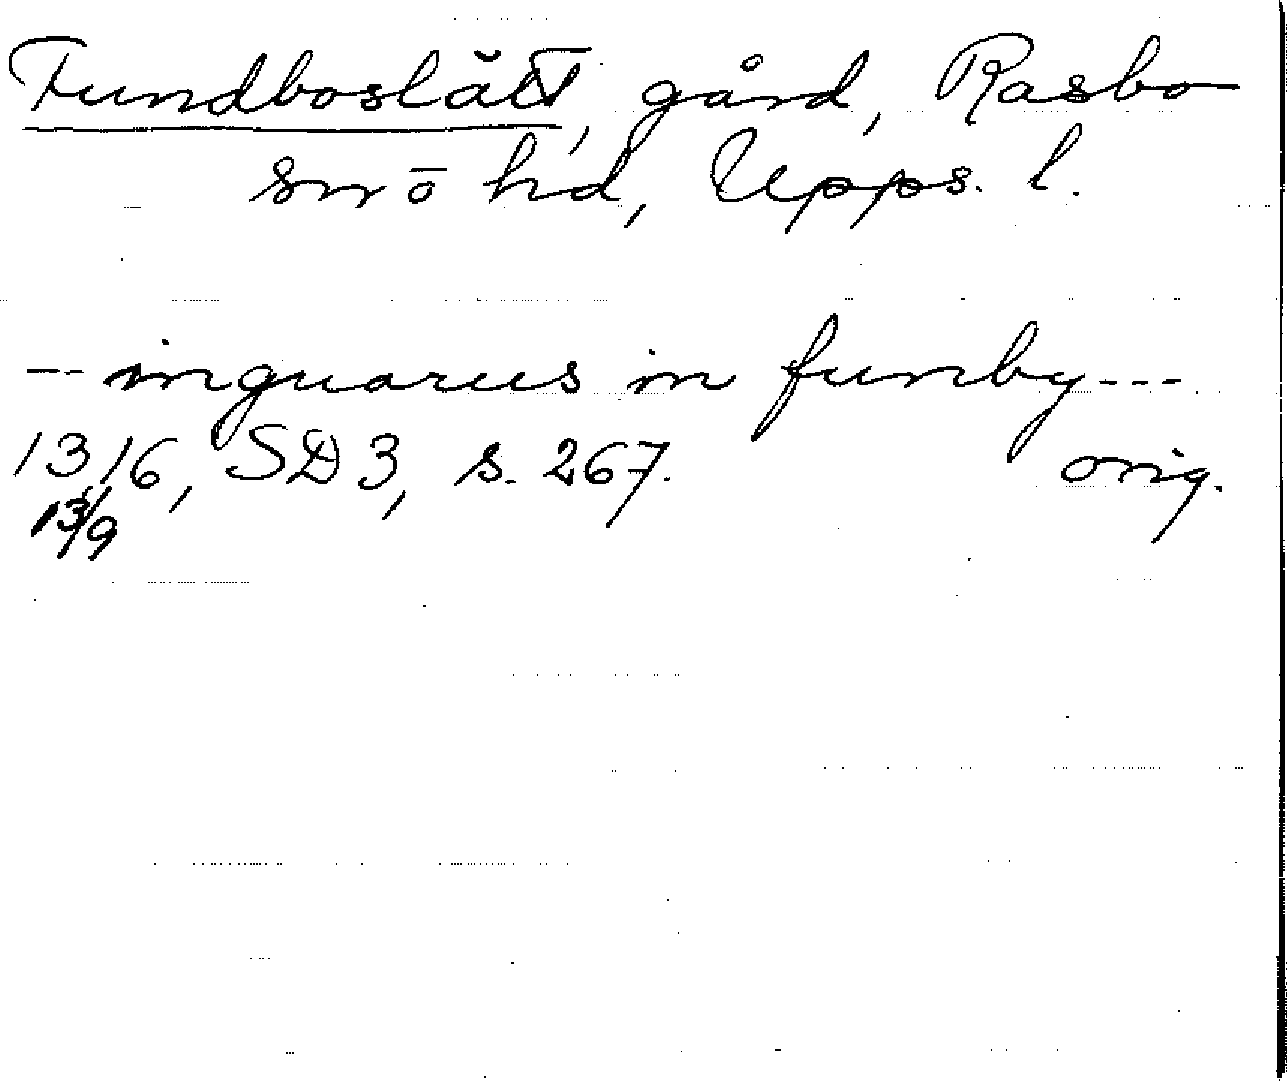 Fundboslätt, gård, Rasbo
sn o hd, Upps. l.
-- inguarus in funby---
1316, SD 3, s. 267. orig.
13/9